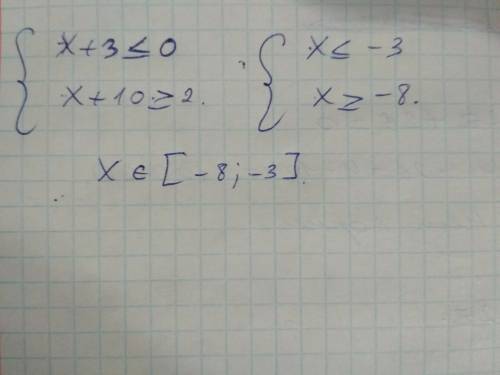 { x + 3 ≤ 0
x + 10 ≥ 2.
{ x ≤ -3
x ≥ -8.
x ∈ [-8; -3].